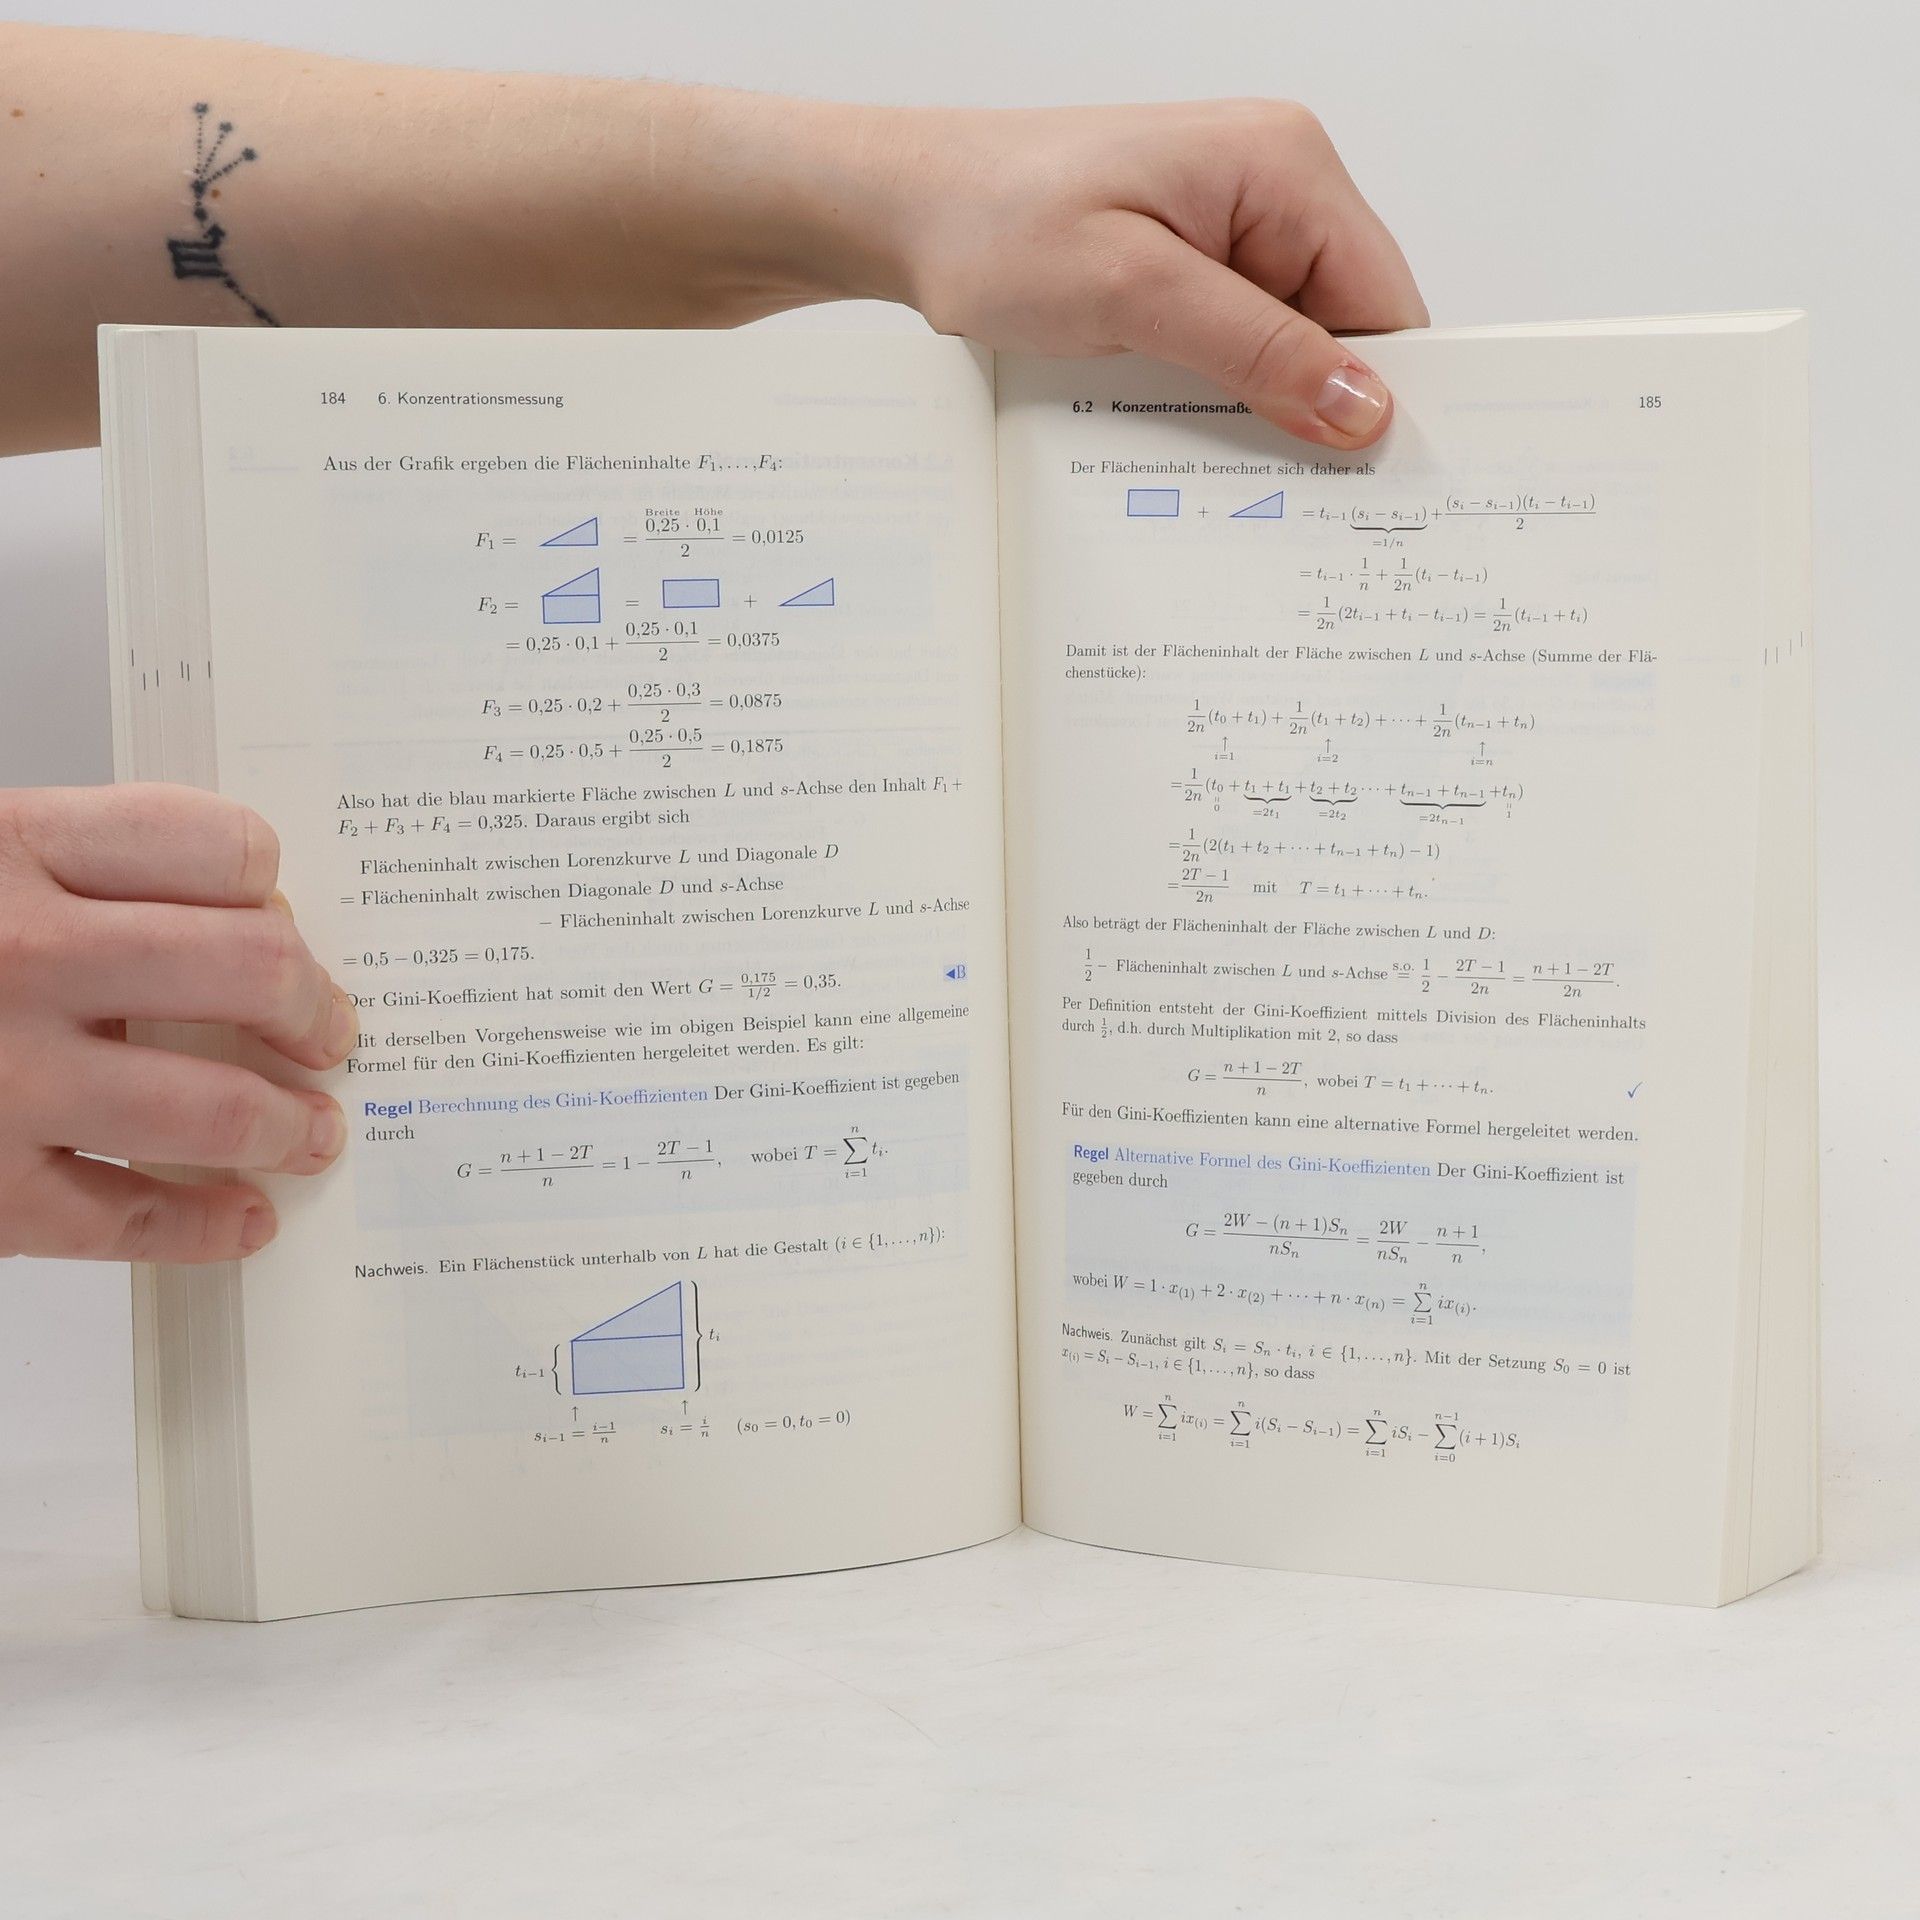 184 6. Konzentrationsmessung
Aus der Grafik ergeben die Flächeninhalte F₁,…,F₄:
Breite Höhe
F₁ = = (0,25 · 0,1)/2 = 0,0125
F₂ = = +
= 0,25 · 0,1 + (0,25 · 0,1)/2 = 0,0375
F₃ = 0,25 · 0,2 + (0,25 · 0,3)/2 = 0,0875
F₄ = 0,25 · 0,5 + (0,25 · 0,5)/2 = 0,1875
Also hat die blau markierte Fläche zwischen L und s-Achse den Inhalt F₁ +
F₂ + F₃ + F₄ = 0,325. Daraus ergibt sich
Flächeninhalt zwischen Lorenzkurve L und Diagonale D
= Flächeninhalt zwischen Diagonale D und s-Achse
− Flächeninhalt zwischen Lorenzkurve L und s-Achse
= 0,5 − 0,325 = 0,175.
Der Gini-Koeffizient hat somit den Wert G = 0,175/(1/2) = 0,35. ◀B
Mit derselben Vorgehensweise wie im obigen Beispiel kann eine allgemeine
Formel für den Gini-Koeffizienten hergeleitet werden. Es gilt:
Regel Berechnung des Gini-Koeffizienten Der Gini-Koeffizient ist gegeben
durch
G = (n + 1 − 2T)/n = 1 − (2T − 1)/n, wobei T = ∑_{i=1}^{n} tᵢ.
Nachweis. Ein Flächenstück unterhalb von L hat die Gestalt (i ∈ {1,…,n}):
tᵢ
tᵢ₋₁
↑ ↑
sᵢ₋₁ = (i−1)/n sᵢ = i/n (s₀ = 0, t₀ = 0)
6.2 Konzentrationsmaße 185
Der Flächeninhalt berechnet sich daher als
+ = tᵢ₋₁ (sᵢ − sᵢ₋₁) + (sᵢ − sᵢ₋₁)(tᵢ − tᵢ₋₁)/2
=1/n
= tᵢ₋₁ · 1/n + 1/2n (tᵢ − tᵢ₋₁)
= 1/2n (2tᵢ₋₁ + tᵢ − tᵢ₋₁) = 1/2n (tᵢ₋₁ + tᵢ)
Damit ist der Flächeninhalt der Fläche zwischen L und s-Achse (Summe der Flä-
chenstücke):
1/2n (t₀ + t₁) + 1/2n (t₁ + t₂) + ··· + 1/2n (tₙ₋₁ + tₙ)
↑ ↑ ↑
i=1 i=2 i=n
= 1/2n (t₀ + t₁ + t₁ + t₂ + t₂ ··· + tₙ₋₁ + tₙ₋₁ + tₙ)
=0 =2t₁ =2t₂ =2tₙ₋₁ =1
= 1/2n (2(t₁ + t₂ + ··· + tₙ₋₁ + tₙ) − 1)
= (2T − 1)/2n mit T = t₁ + ··· + tₙ.
Also beträgt der Flächeninhalt der Fläche zwischen L und D:
1/2 − Flächeninhalt zwischen L und s-Achse s.o. = 1/2 − (2T − 1)/2n = (n + 1 − 2T)/2n.
Per Definition entsteht der Gini-Koeffizient mittels Division des Flächeninhalts
durch 1/2, d.h. durch Multiplikation mit 2, so dass
G = (n + 1 − 2T)/n, wobei T = t₁ + ··· + tₙ. ✓
Für den Gini-Koeffizienten kann eine alternative Formel hergeleitet werden.
Regel Alternative Formel des Gini-Koeffizienten Der Gini-Koeffizient ist
gegeben durch
G = (2W − (n + 1)Sₙ)/nSₙ = 2W/nSₙ − (n + 1)/n,
wobei W = 1 · x₍₁₎ + 2 · x₍₂₎ + ··· + n · x₍ₙ₎ = ∑_{i=1}^{n} ix₍ᵢ₎.
Nachweis. Zunächst gilt Sᵢ = Sₙ · tᵢ, i ∈ {1,…,n}. Mit der Setzung S₀ = 0 ist
x₍ᵢ₎ = Sᵢ − Sᵢ₋₁, i ∈ {1,…,n}, so dass
W = ∑_{i=1}^{n} ix₍ᵢ₎ = ∑_{i=1}^{n} i(Sᵢ − Sᵢ₋₁) = ∑_{i=1}^{n} iSᵢ − ∑_{i=0}^{n−1} (i + 1)Sᵢ